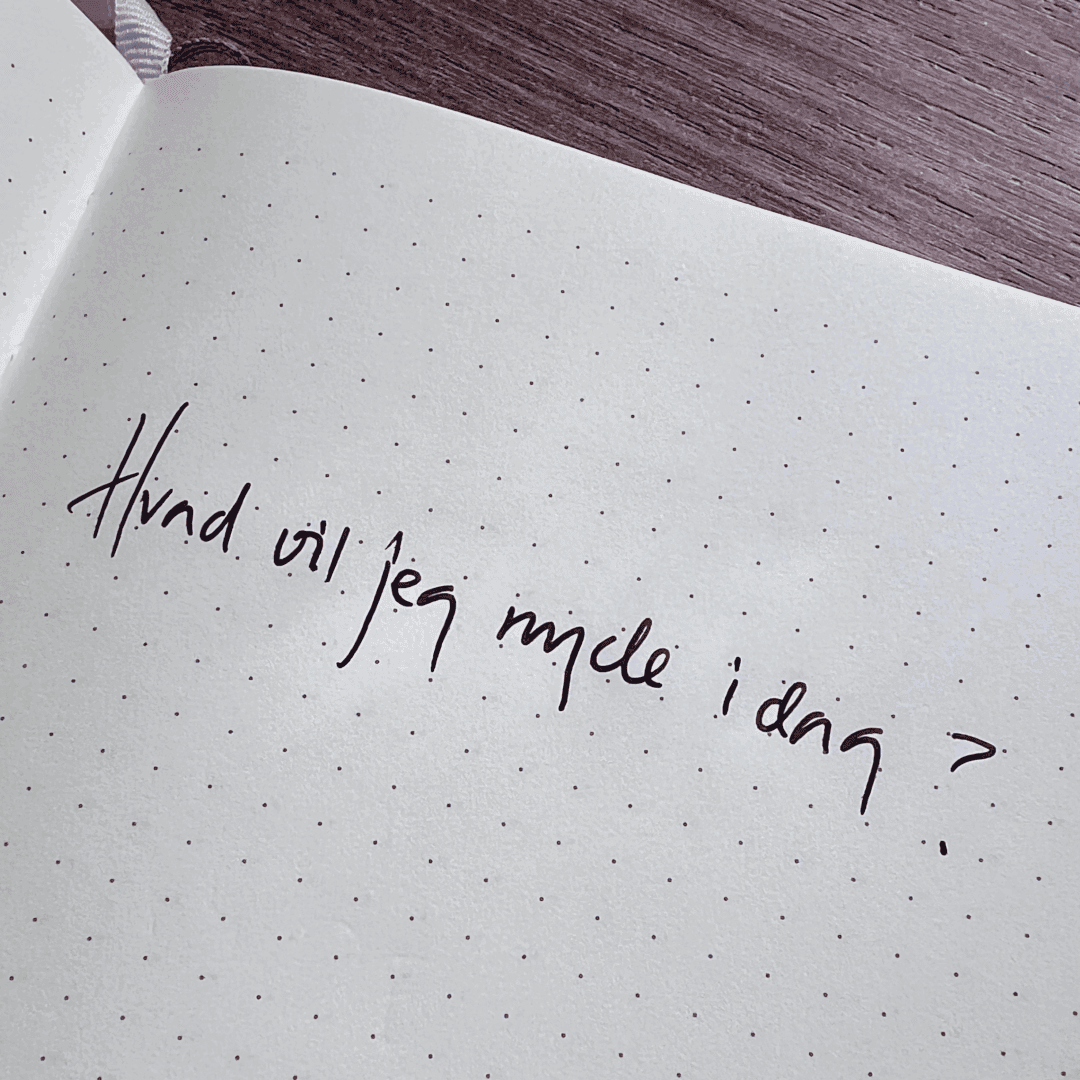 Hvad vil jeg nyde i dag?